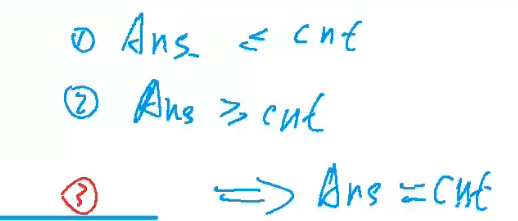 ① Ans ≤ cnt
② Ans ≥ cnt
③ ⇒ Ans = cnt